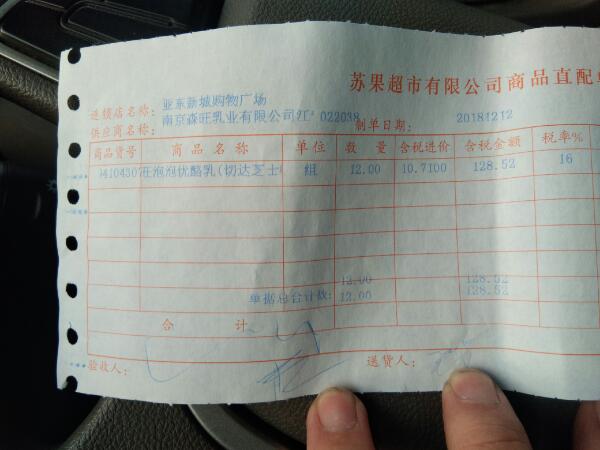 苏果超市有限公司商品直配单
连锁店名称: 亚东新城购物广场
供应商名称: 南京森旺乳业有限公司江* 022038 制单日期: 20181212
商品货号 商品名称 单位 数量 含税进价 含税金额 税率%
旺泡泡优酪乳(切达芝士 组 12.00 10.7100 128.52 16
12.00 128.52
单据总合计数: 12.00 128.52
合计
验收人: 送货人: